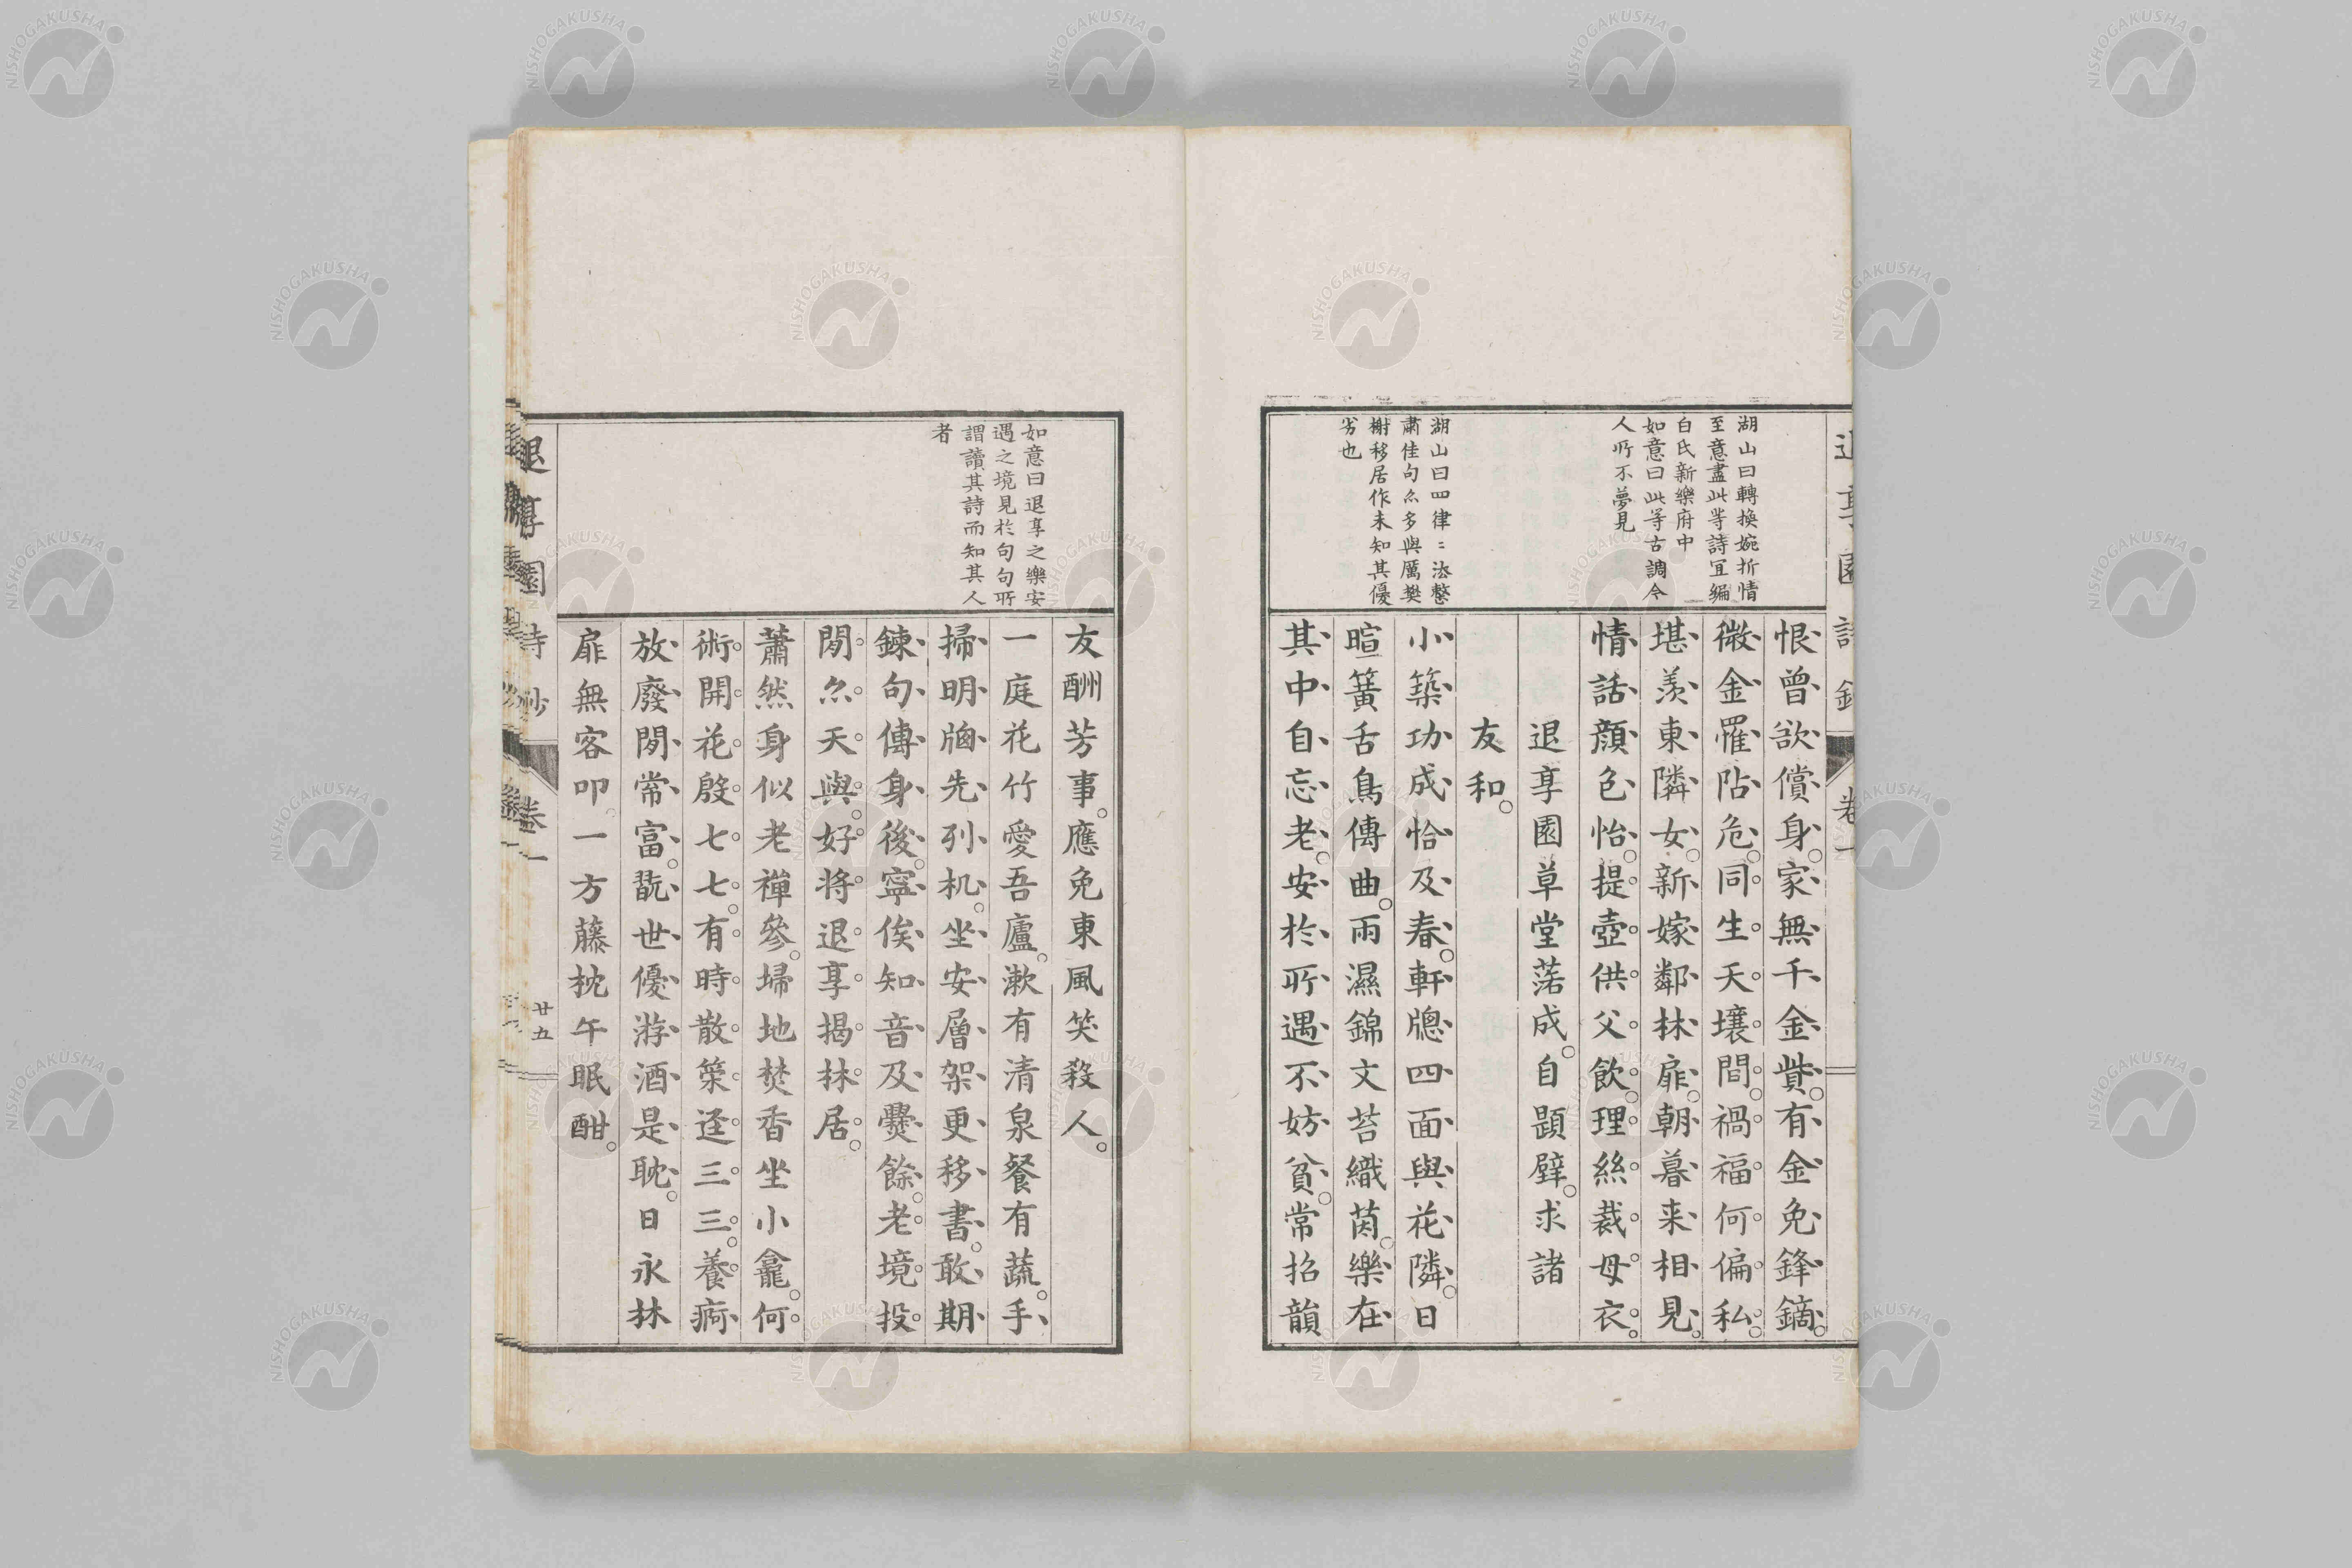 湖山曰轉換婉折情
至意盡此等詩宜編
白氏新樂府中
如意曰此等古調今
人所不夢見
湖山曰四律〻法整
肅佳句尒多與厲樊
榭移居作未知其優
劣也
恨曾欲償身家無千金貲有金免鋒鏑
微金罹阽危同生天壤間禍福何偏私
堪羨東隣女新嫁鄰林扉朝暮来相見
情話顔色怡提壺供父飲理絲裁母衣
退享園草堂落成自題壁求諸
友和
小築功成恰及春軒牕四面與花隣日
暄簧舌鳥傳曲雨濕錦文苔織茵樂在
其中自忘老安於所遇不妨貧常招韻
如意曰退享之樂安
遇之境見於句句所
謂讀其詩而知其人
者
友酬芳事應免東風笑殺人
一庭花竹愛吾廬漱有清泉餐有蔬手
掃明牕先列机坐安層架更移書敢期
鍊句傳身後寧俟知音及爨餘老境投
閒尒天與好将退享揭林居
蕭然身似老禪參埽地焚香坐小龕何
術開花殷七七有時散策迳三三養痾
放廢閒常富翫世優游酒是耽日永林
扉無客叩一方藤枕午眠酣
退享園詩鈔
卷一
廿五
NISHOGAKUSHA